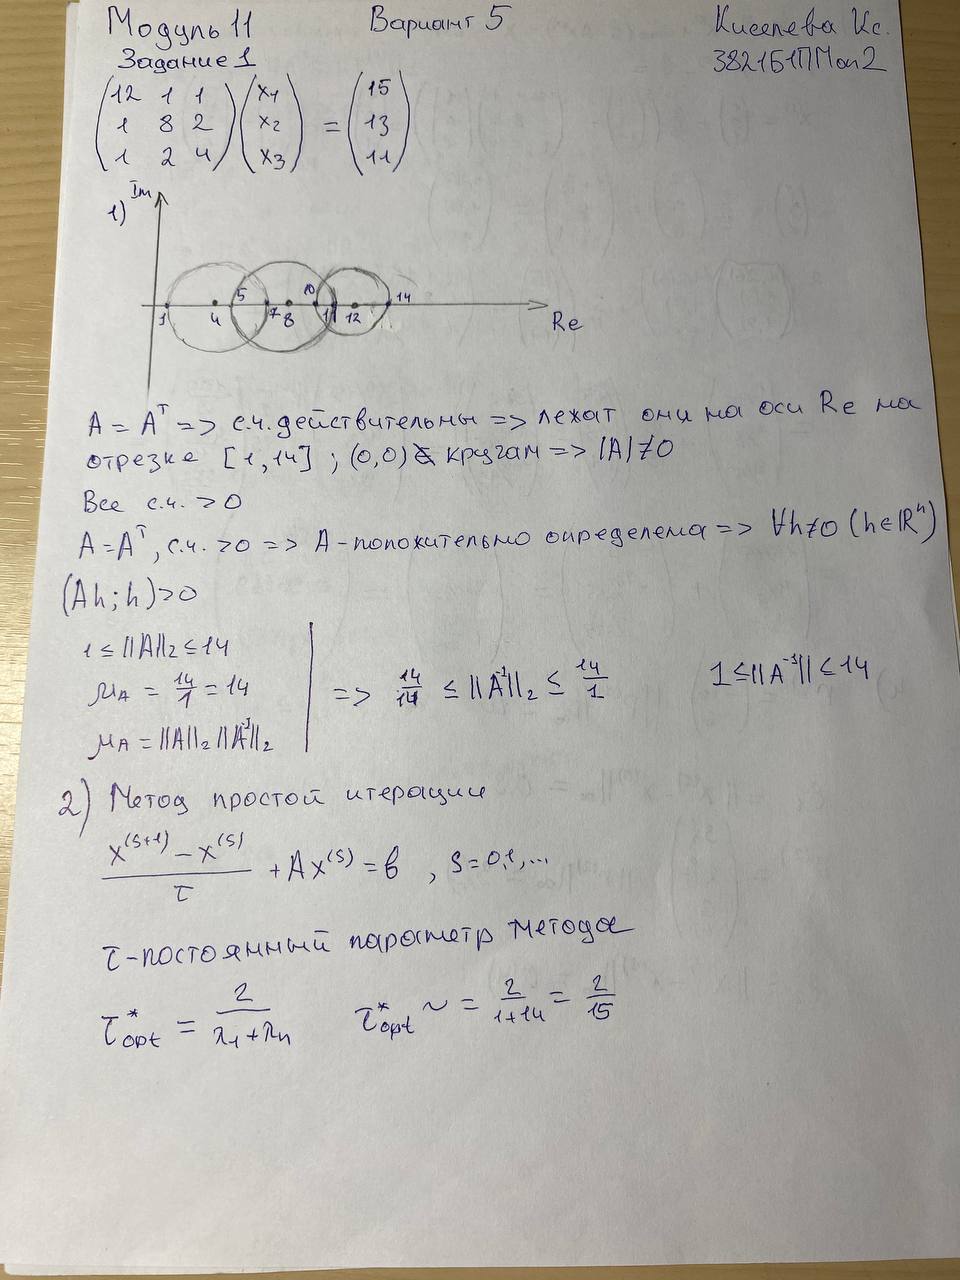 Модуль 11 Вариант 5 Киселева Кс.
Задание 1 3821Б1ПМоп2
(12 1 1) (x₁) (15)
(1 8 2) (x₂) = (13)
(1 2 4) (x₃) (11)
1) Im
1 4 5 7 8 10 11 12 14 Re
A = Aᵀ => с.ч. действительны => лежат они на оси Re на
отрезке [1,14] ; (0,0) ∉ кругам => |A| ≠ 0
Все с.ч. > 0
A = Aᵀ, с.ч. > 0 => A - положительно определена => ∀h≠0 (h∈ℝⁿ)
(Ah; h) > 0
1 ≤ ||A||₂ ≤ 14
μ_A = 14/1 = 14 => 14/14 ≤ ||A⁻¹||₂ ≤ 14/1 1 ≤ ||A⁻¹|| ≤ 14
μ_A = ||A||₂ ||A⁻¹||₂
2) Метод простой итерации
(x^(s+1) − x^(s))/τ + Ax^(s) = b , s = 0,1,...
τ - постоянный параметр метода
τ*_opt = 2/(λ₁+λₙ) τ*_opt ~ = 2/(1+14) = 2/15